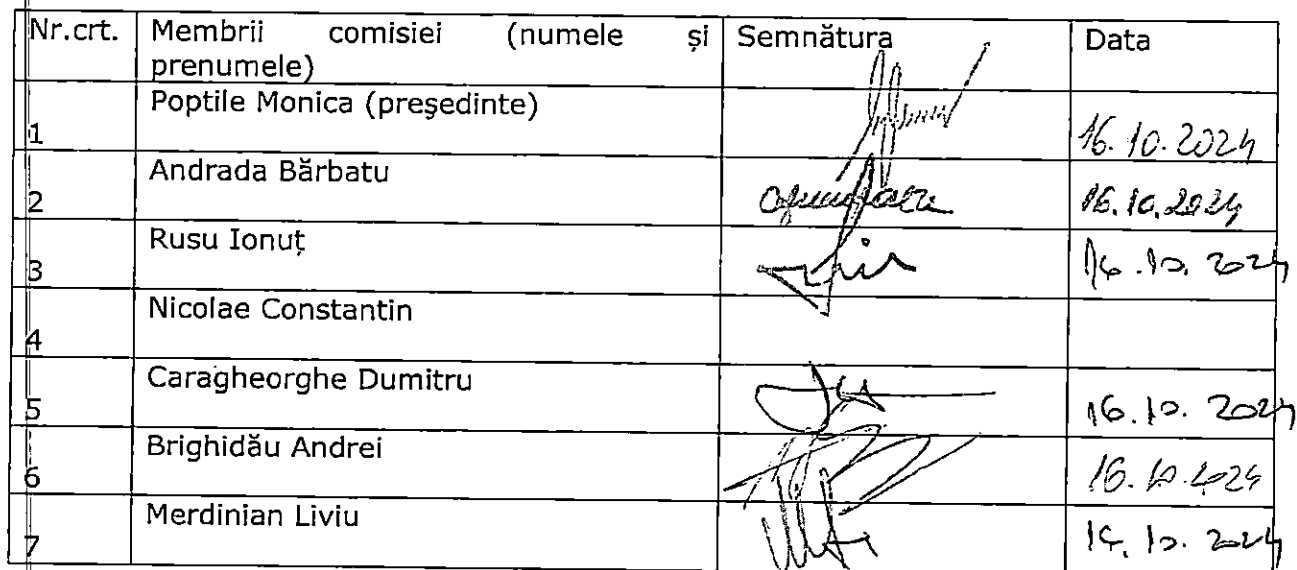 Nr.crt. Membrii comisiei (numele și Semnătura Data
prenumele)
Poptile Monica (președinte)
1 16.10.2024
Andrada Bărbatu
2 16.10.2024
Rusu Ionuț
3 16.10.2024
Nicolae Constantin
4
Caragheorghe Dumitru
5 16.10.2024
Brighidău Andrei
6 16.10.2024
Merdinian Liviu
7 10.2024